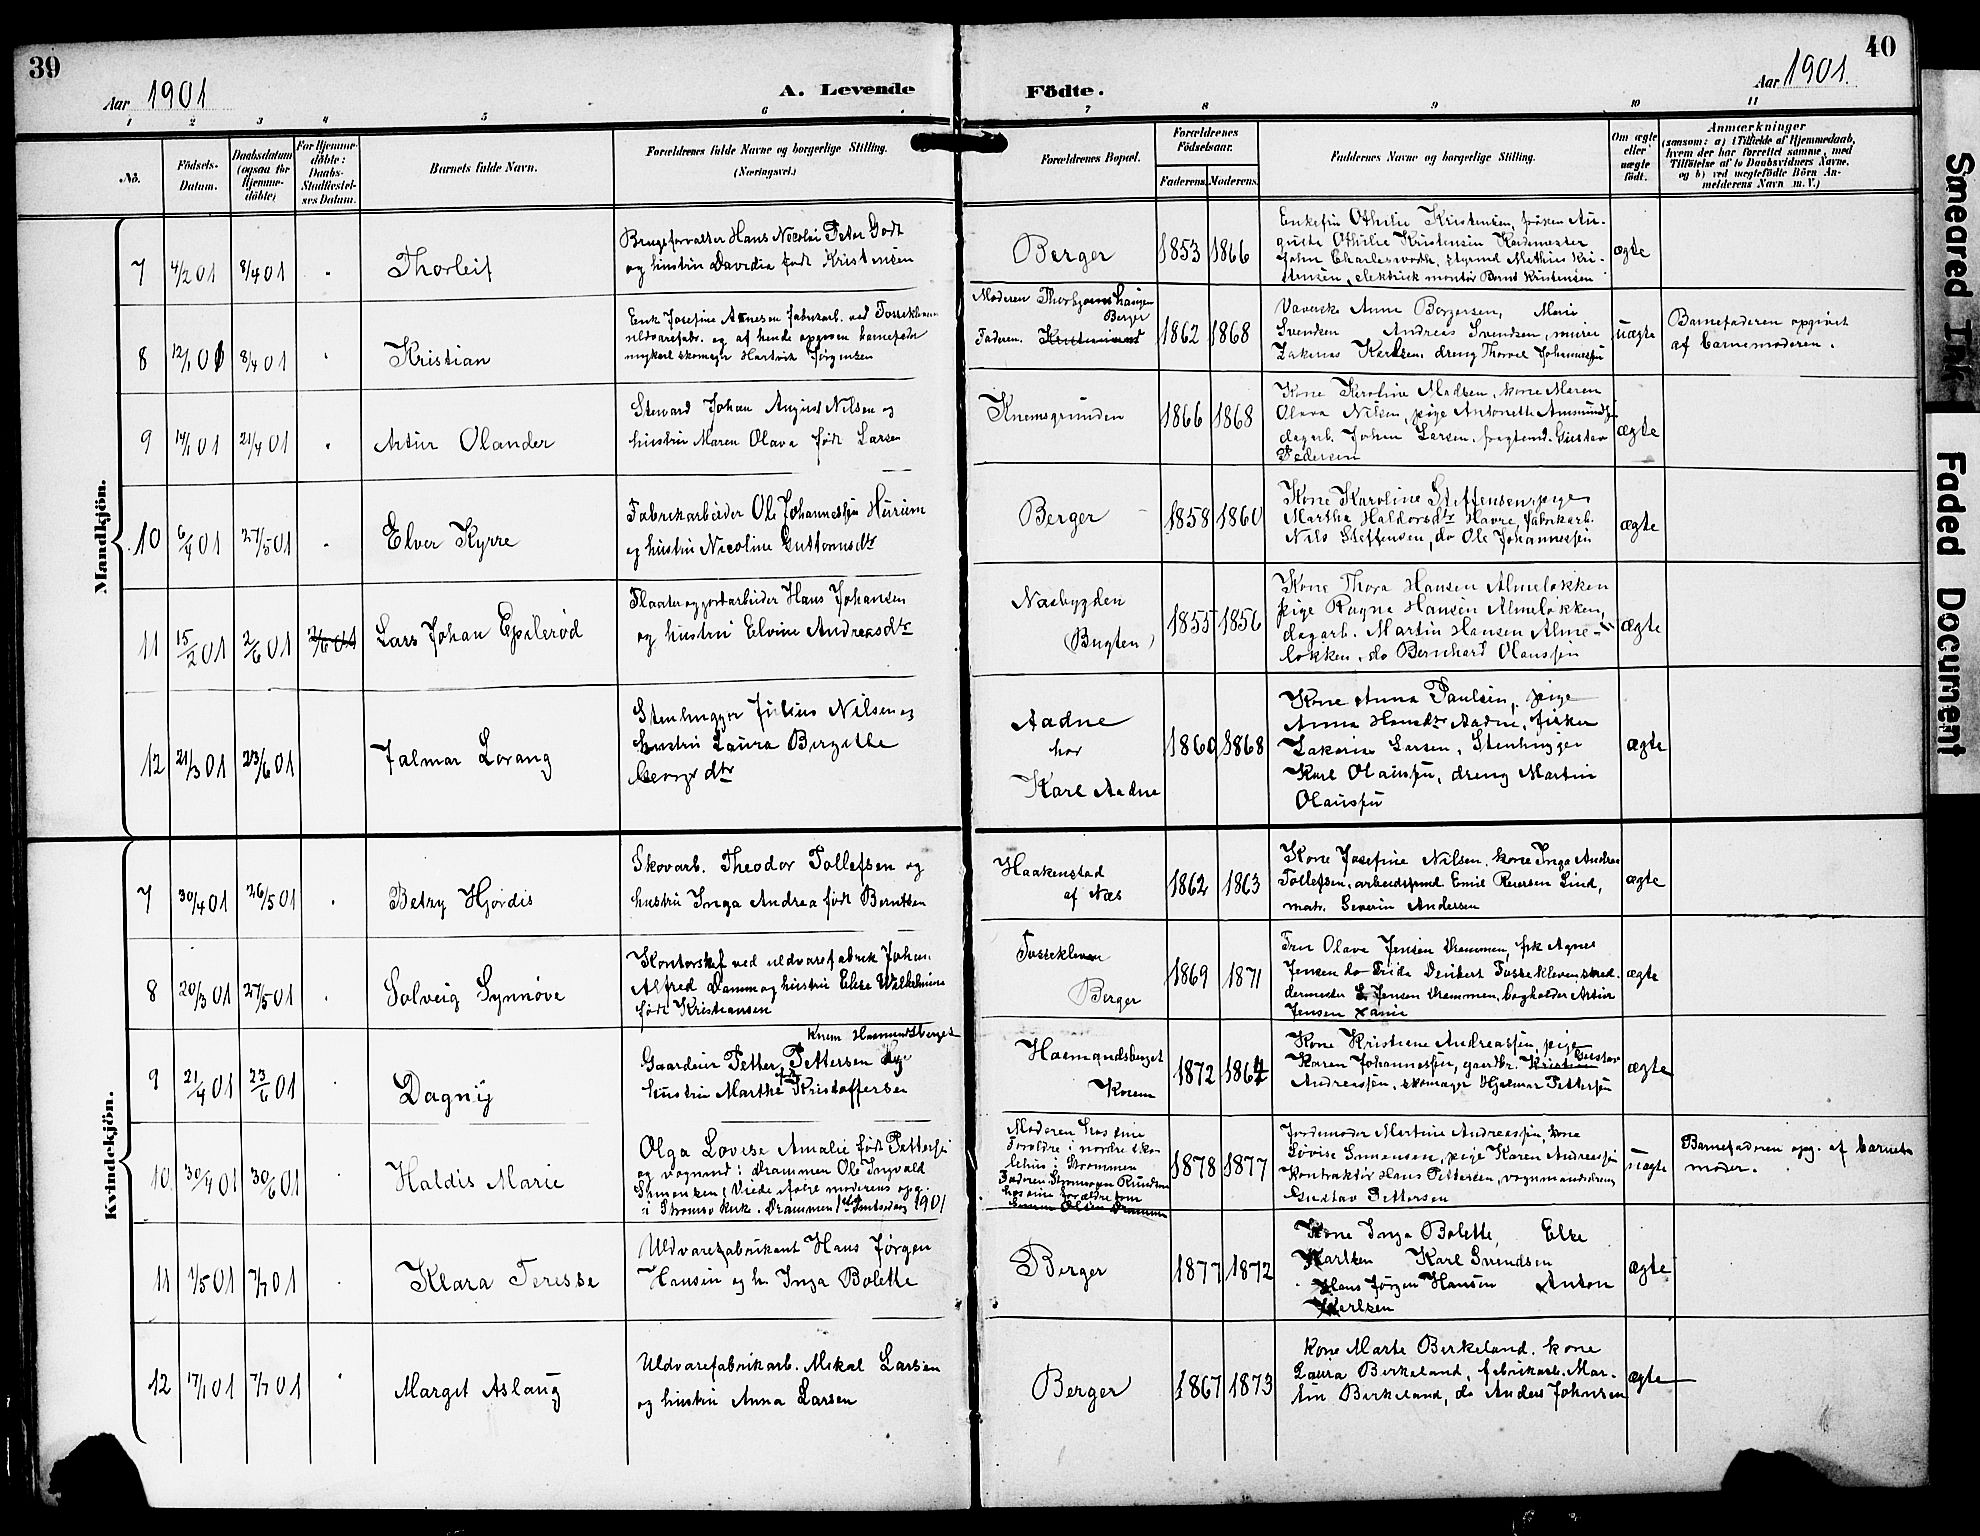 39
Aar 1901
A. Levende
Födte.
Aar 1901.
40
1 2 3 4 5 6 7 8 9 10 11
No.
Födsels-
Datum.
Daabsdatum
(ogsaa for
Hjemme-
döbte)
For Hjemme-
döbte:
Daabs-
Stadfæstel-
ses Datum.
Barnets fulde Navn.
Forældrenes fulde Navne og borgerlige Stilling.
(Næringsvei.)
Forældrenes Bopæl.
Forældrenes
Födselsaar.
Faderens. Moderens.
Faddernes Navne og borgerlige Stilling.
Om ægte
eller
uægte
födt.
Anmærkninger
(saasom: a) i Tilfælde af Hjemmedaab,
hvem der har forrettet samme, med
Tilföielse af to Daabsvidners Navne,
og b) ved uægtefödte Börn An-
melderens Navn m. V.)
Mandkjön.
7 4/2 01 8/4 01 Thorleif
Brugsforvalter Hans Nicolai Peter Godt
og hustru Davidia født Kristensen
Berger
1853 1866
Enkefru Othilie Kristensen, frøken Au-
gusta Othilie Kristensen
John Charlesworth, styrmd Mathias Kri-
stensen, elektrisk montør Bernt Kristensen
ægte
8 12/1 01 8/4 01 Kristian
Enk Josefine Arnesen fabrikarb. ved Fossekleven
uldvarefabr. og af hende opgiven barnefader
skomager Hartvik Jørgensen
Moderen Thorbjørns
Berger
Faderen.
1862 1868
Væverske Anne Borgersen, Marie
Svendsen Andreas Svendsen, murer
Zakarias Karlsen, dreng Thorvel Johannessen
uægte
Barnefaderen opgivet
af barnemoderen.
9 14/1 01 21/4 01 Artur Olander
Steward Johan August Nilsen og
hustru Maren Olava født Larsen
Knemsgrunden
1866 1868
Kone Karoline Madsen, kone Maren
Olava Nilsen, pige Antonette Ammundsen
dagarb. Johan Larsen, fragtemd. Gustav
Pedersen
ægte
10 6/4 01 27/5 01 Elver Kyrre
Fabrikarbeider Ole Johannessen Hurum
og hustru Nicoline Guttormsdtr
Berger
1858 1860
Kone Karoline Steffensen, pige
Martha Haldorsdtr Havre, fabrikarb.
Nils Steffensen, do Ole Johannessen
ægte
11 15/2 01 2/6 01 2/6 01 Lars Johan Eplerød
Flaater og jordarbeider Hans Johansen
og hustru Elvine Andreasdtr
Næsbygden
(Bugten)
1855 1856
Kone Thora Hansen Almeløkken
pige Ragna Hansen Almeløkken,
dagarb. Martin Hansen Alme-
løkken, do Bernhard Olaussen
ægte
12 21/3 01 23/6 01 Jalmar Lorang
Stenhugger Julius Nilsen og
hustru Laura Bergitte
Georgsdtr
Aadne
hos
Karl Aadne
1860 1868
Kone Anna Paulsen, pige
Anna Hansdtr Aadne, fisker
Zakarias Larsen, Stenhugger
Karl Olaussen, dreng Martin
Olaussen
ægte
Kvindekjön.
7 30/4 01 26/5 01 Betzy Hjørdis
Skovarb. Theodor Tollefsen og
hustru Inga Andrea født Berntsen
Haakenstad
af Næs
1862 1863
Kone Josefine Nilsen, kone Inga Andrea
Tollefsen, arbeidsfmd Emil Reiersen Lind,
matr. Severin Andersen
ægte
8 20/3 01 27/5 01 Solveig Synnøve
Kontorchef ved uldvarefabrik Johan
Alfred Damm og hustru Elise Wilhelmine
født Kristiansen
Fossekleven
Berger
1869 1871
Fru Olava Jensen Drammen, frk Agnes
Jensen do Frida Denkert Fossekleven, skræd-
dermester L. Jensen Drammen, bogholder Artur
Jensen
ægte
9 21/4 01 23/6 01 Dagny
Knem Hasmundsberget
Gaardeier Petter Pettersen og
hustru Marthe fr Kristoffersen
Hasmandsberget
Knem
1872 1864
Kone Kristiane Andreassen, pige
Karen Johannessen, gaardbr. Kristian Gustav
Andreassen, skomager Hjalmar Pettersen
ægte
10 30/4 01 30/6 01 Haldis Marie
Olga Lovise Amalie født Pettersen
og vognmd i Drammen Ole Ingvald
Simensen, Viede ifølge moderens opg.
i Strømsø kirke. Drammen 1ste Juledag 1901
Moderen hos sine
Forældre i nordre sko-
lehus i Strømmen
Faderen
hos sine forældre
Olsen Drammen
1878 1877
Jordemoder Martine Andreassen, kone
Lovise Simensen, pige Karen Andreassen
Kontraktør Hans Pettersen, vognmandsdreng
Gustav Pettersen
uægte
Barnefaderen opg. af barnets
moder.
11 1/5 01 7/7 01 Klara Teresse
Uldvarefabrikant Hans Jørgen
Hansen og h. Inga Bolette
Berger
1877 1872
Kone Inga Bolette, Else
Karlsen Karl Svendsen
Hans Jørgen Hansen Anton
Karlsen
ægte
12 17/1 01 7/7 01 Margit Aslaug
Uldvarefabrikarb. Mikal Larsen
og hustru Anna Larsen
Berger
1867 1873
Kone Marte Birkeland, kone
Laura Birkeland, fabrikarb. Mar-
tin Birkeland, do Anders Johnsen
ægte
Smeared Ink
Faded Document